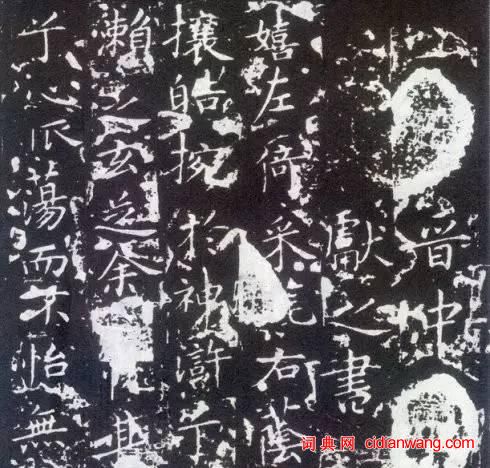 晉中
獻之書
嬉左倚采旄右蔭
攘皓捥於神滸兮
瀨之玄芝余其
兮心振蕩而不怡無
词典网 cidianwang.com